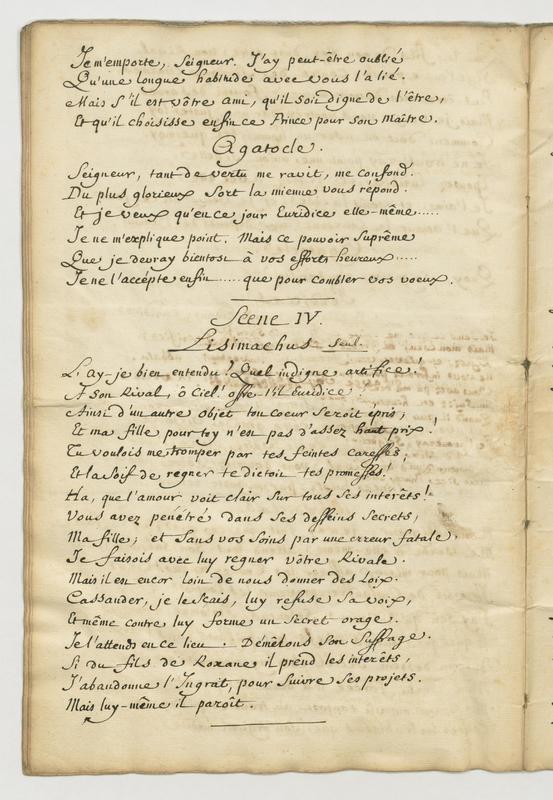 Je m'emporte, Seigneur. J'ay peut-être oublié
Qu'une longue habitude avec vous l'a lié.
Mais s'il est vôtre ami, qu'il soit digne de l'être,
Et qu'il choisisse enfin ce Prince pour son Maître.
Agatocle.
Seigneur, tant de vertu me ravit, me confond.
Du plus glorieux Sort la mienne vous répond.
Et je veux qu'en ce jour Euridice elle-même.....
Je ne m'explique point. Mais ce pouvoir Suprême
Que je devray bientost à vos efforts heureux.....
Je ne l'accepte enfin..... que pour combler vos voeux.
Scene IV.
Lisimachus Seul.
L'ay-je bien entendu! Quel indigne artifice!
A son Rival, ô Ciel! offre-t'il Euridice!
Ainsi d'un autre objet ton Coeur Seroit épris,
Et ma fille pour toy n'est pas d'assez haut prix!
Tu voulois me tromper par tes feintes caresses,
Et la Soif de regner te dictoit tes promesses!
Ha, que l'amour voit clair Sur tous Ses interêts!
Vous avez penétré dans Ses desseins Secrets,
Ma fille; et Sans vos Soins par une erreur fatale,
Je faisois avec luy regner vôtre Rivale.
Mais il est encor loin de nous donner des Loix.
Cassander, je le Scais, luy refuse Sa voix,
Et même contre luy forme un Secret orage.
Je l'attends en ce lieu. Démêlons Son Suffrage.
Si du fils de Roxane il prend les interêts,
J'abandonne l'Ingrat, pour Suivre Ses projets.
Mais luy-même il paroît.